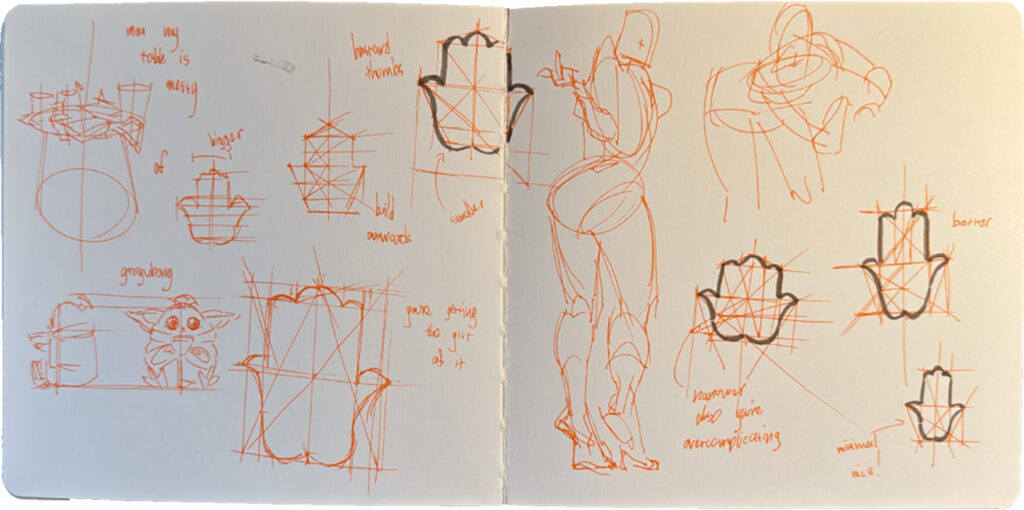 man my
table is
messy
bastard
thumbs
bigger
af
build
outwards
smaller
grogubong
you're getting
the gist
of it
better
narrower
also you're
overcomplicating
minimal
nice!